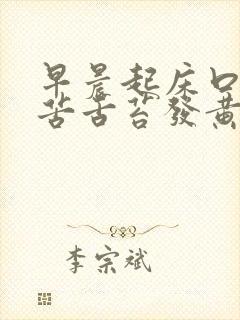 早晨起床口
苦舌苔發黃
李宗斌